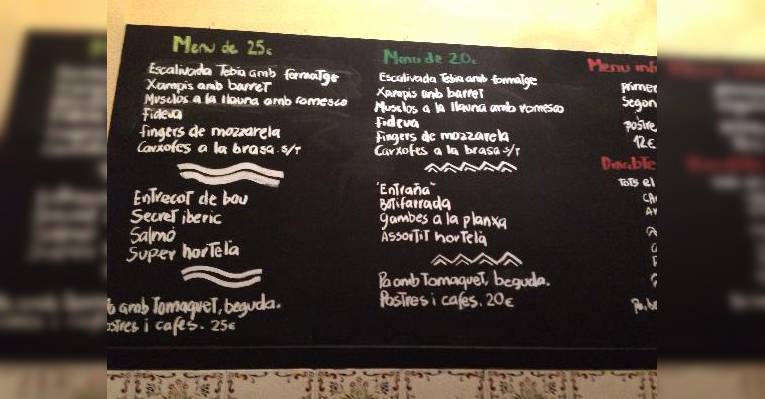 Menu de 25€
Escalivada Tebia amb formatge
Xampis amb barret
Musclos a la llauna amb romesco
Fideva
fingers de mozzarela
Carxofes a la brasa s/t
Entrecot de bou
Secret iberic
Salmó
Super hortelà
amb Tomaquet, beguda.
i cafes. 25€
Menu de 20€
Escalivada Tebia amb formatge
Xampis amb barret
Musclos a la llauna amb romesco
Fideva
Fingers de mozzarela
Carxofes a la brasa s/t
"Entraña"
Botifarrada
gambes a la planxa
Assortit hortelà
Pa amb Tomaquet, beguda.
Postres i cafes. 20€
Menu inf
primer
Segon
postre
12€
Tots el